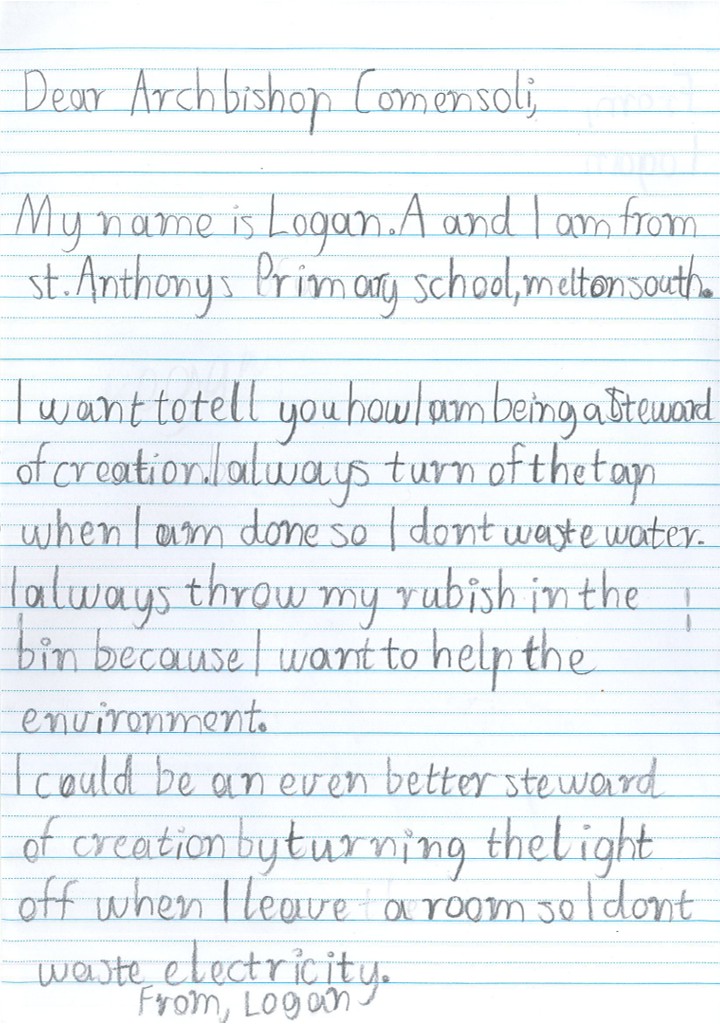 Dear Archbishop Comensoli,
My name is Logan.A and I am from
st.Anthonys Primary school,melton south.
I want to tell you how I am being a Steward
of creation. I always turn of the tap
when I am done so I dont waste water.
I always throw my rubish in the
bin because I want to help the
environment.
I could be an even better steward
of creation by turning the light
off when I leave a room so I dont
waste electricity.
From, Logan